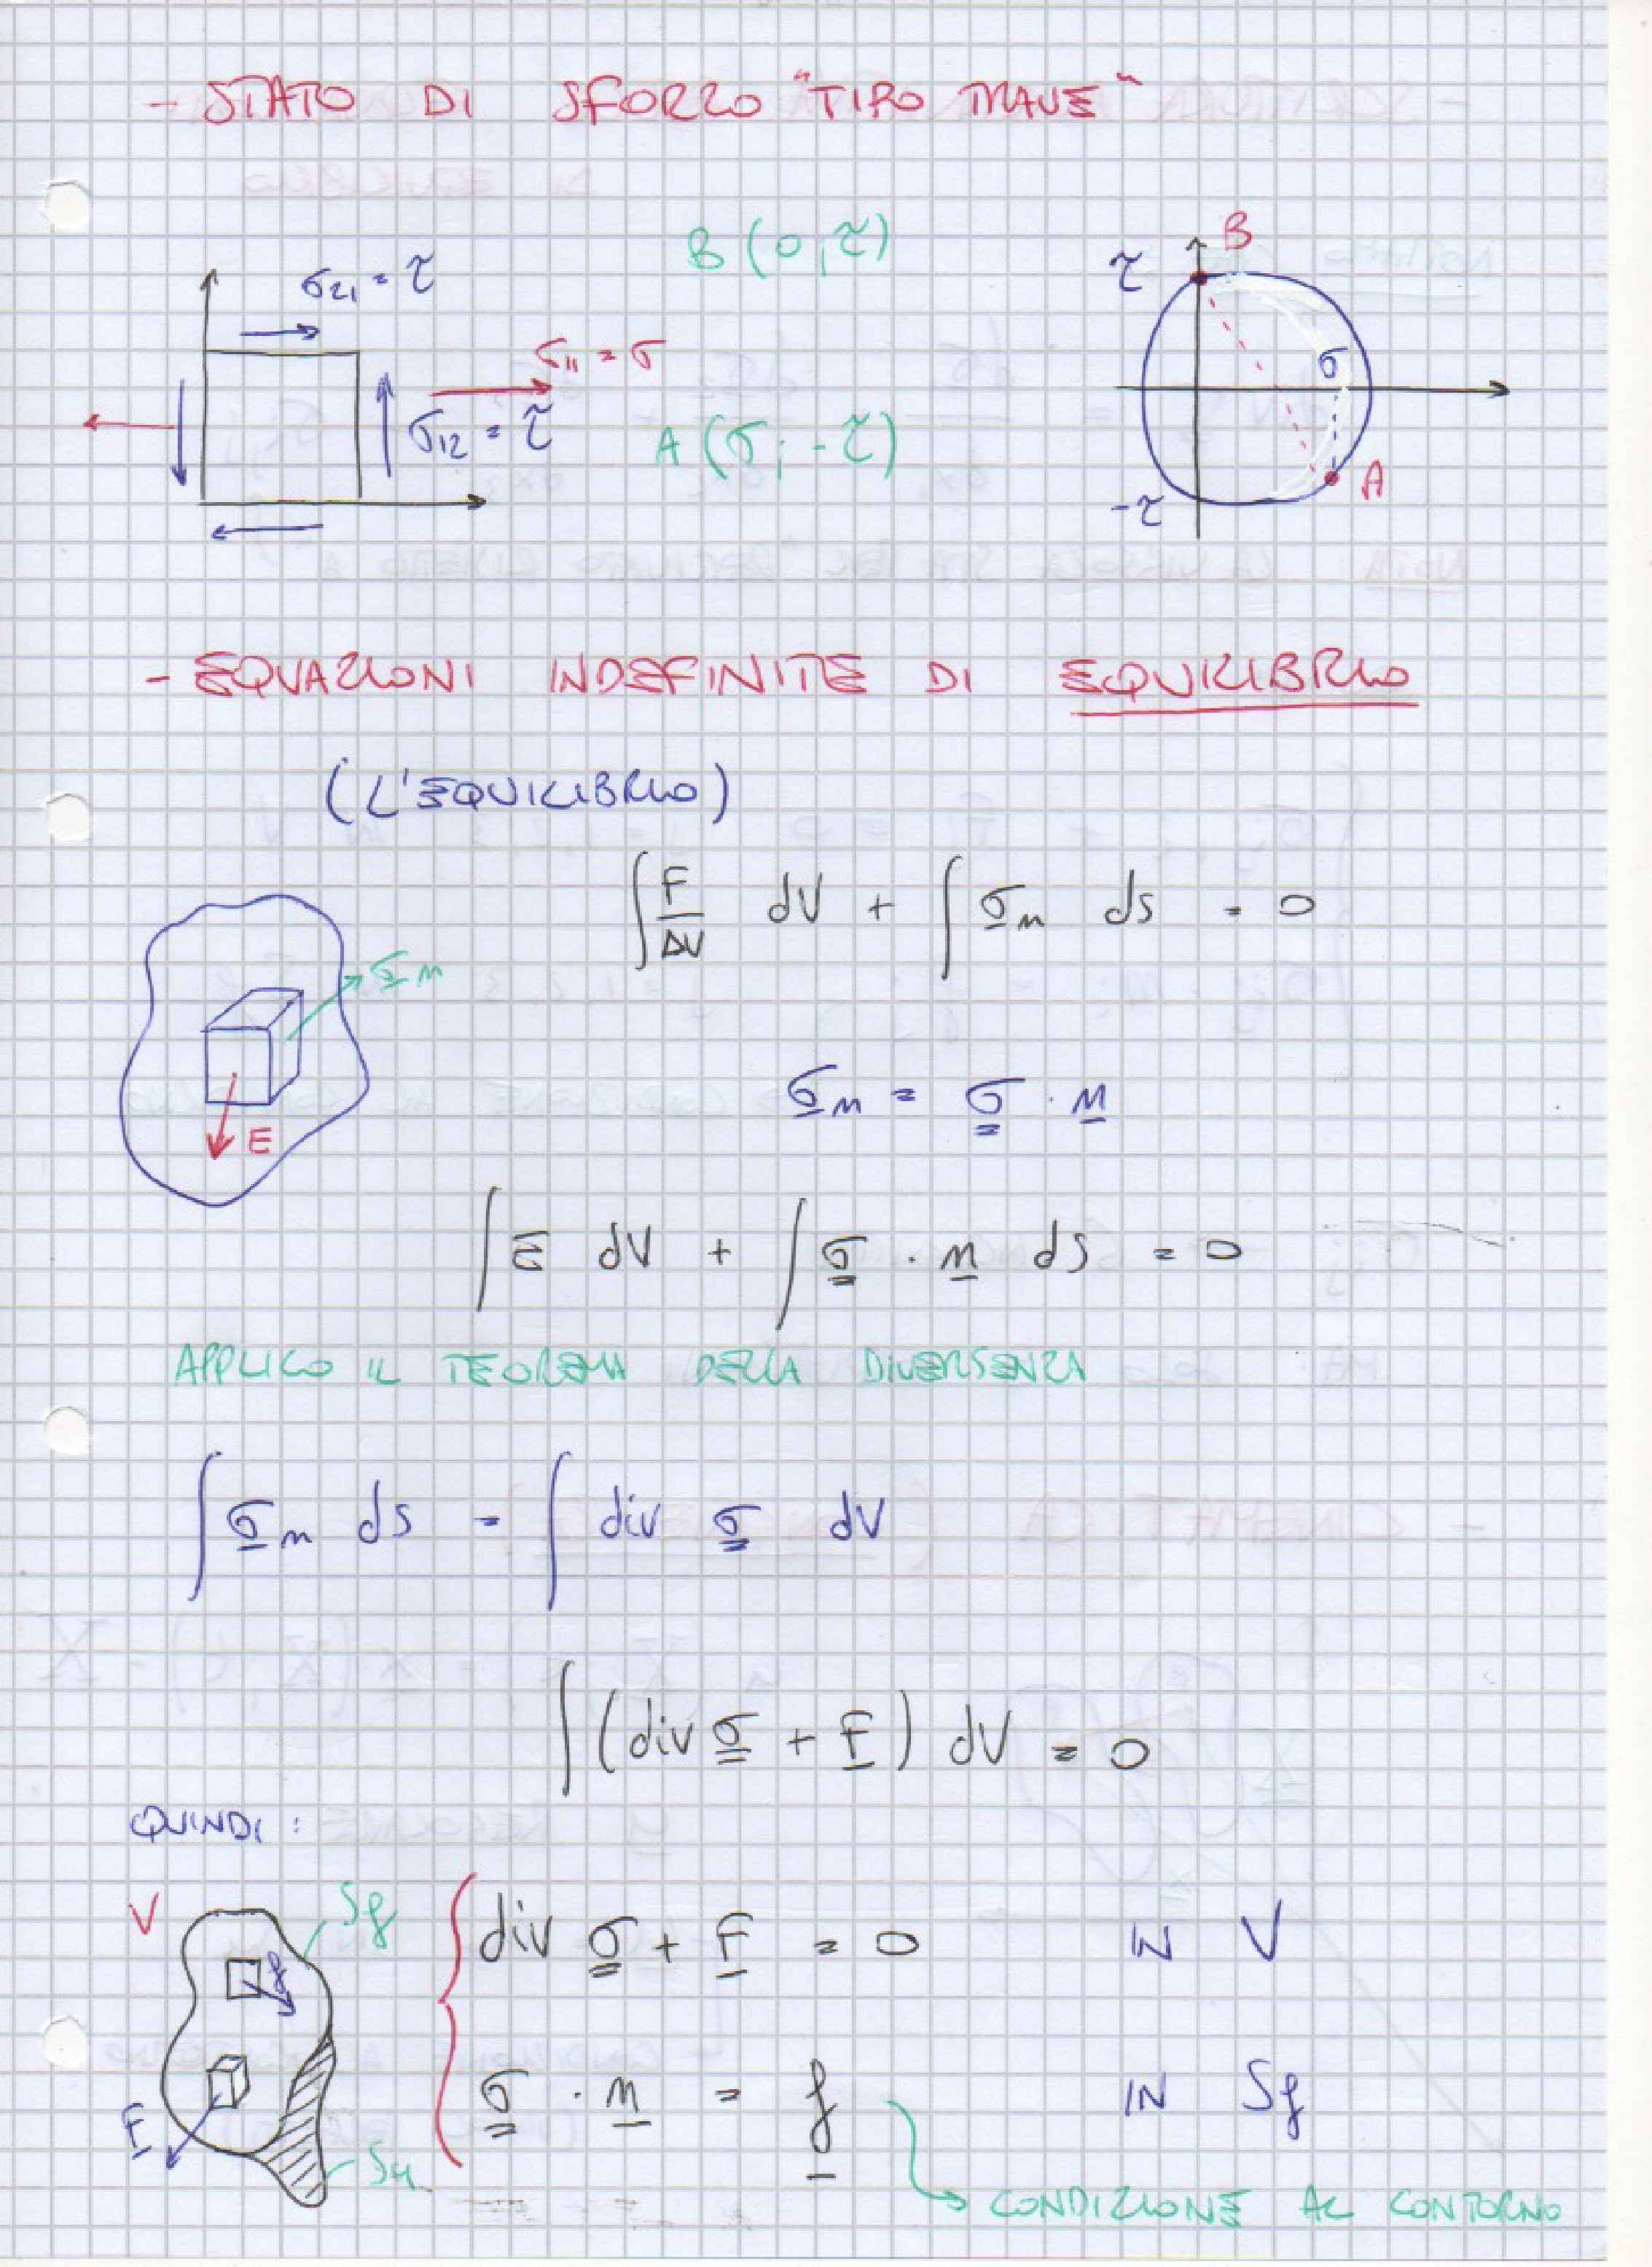 - STATO DI SFORZO "TIPO TRAVE"
B (0, τ)
B
τ
σ21 = τ
σ11 = σ
σ
σ12 = τ
A (σ; -τ)
A
-τ
- EQUAZIONI INDEFINITE DI EQUILIBRIO
(L'EQUILIBRIO)
∫ F/ΔV dV + ∫ σn ds = 0
σn
σn = σ · n
F
∫ F dV + ∫ σ · n ds = 0
APPLICO IL TEOREMA DELLA DIVERGENZA
∫ σn ds = ∫ div σ dV
∫ (div σ + F) dV = 0
QUINDI:
V
Sf
div σ + F = 0 IN V
f
σ · n = f IN Sf
F
Su
CONDIZIONE AL CONTORNO